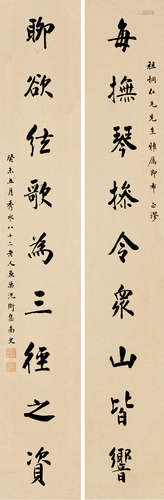 每撫琴操令眾山皆響
祖桐仁兄先生雅屬即希正謬
聊欲弦歌為三徑之資
癸未五月秀水八十二老人
沈衛集南史